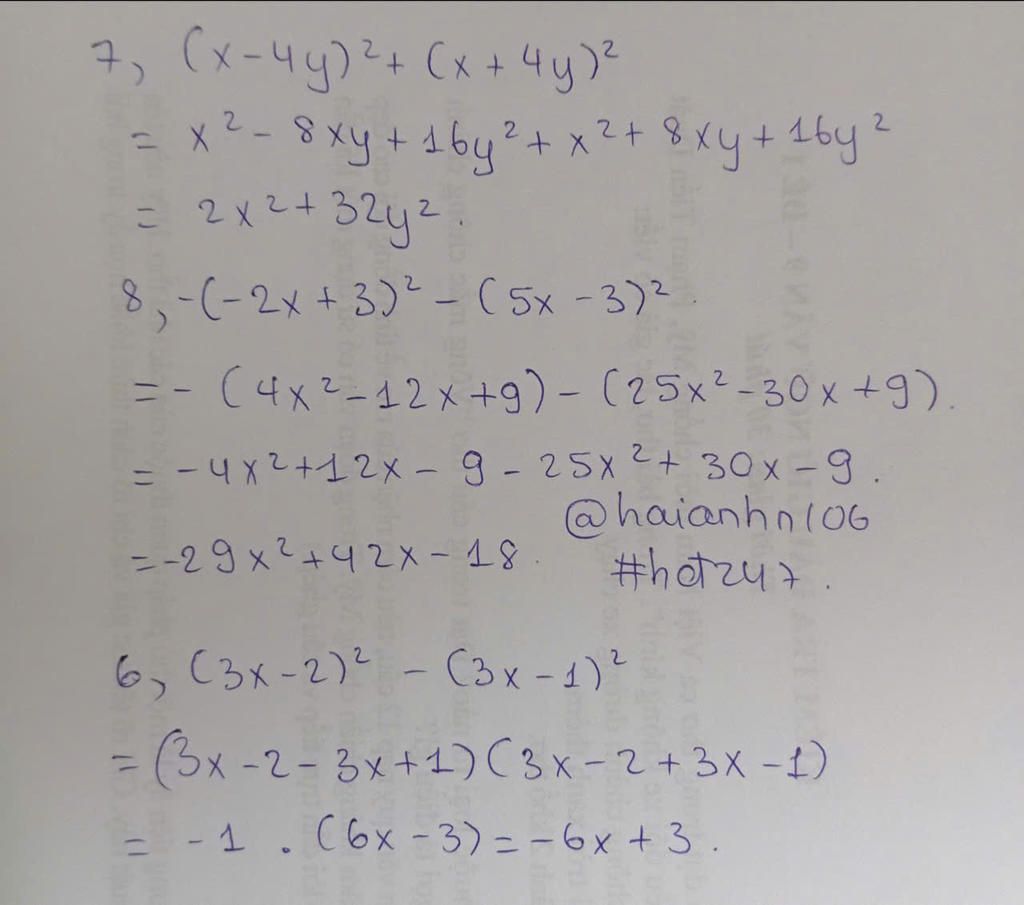 7, (x-4y)² + (x+4y)²
= x² - 8xy + 16y² + x² + 8xy + 16y²
= 2x² + 32y².
8, -(-2x+3)² - (5x-3)².
= - (4x² - 12x + 9) - (25x² - 30x + 9).
= -4x² + 12x - 9 - 25x² + 30x - 9.
@haianhn106
= -29x² + 42x - 18.
#hot247.
6, (3x-2)² - (3x-1)²
= (3x-2-3x+1)(3x-2+3x-1)
= -1 . (6x-3) = -6x+3.